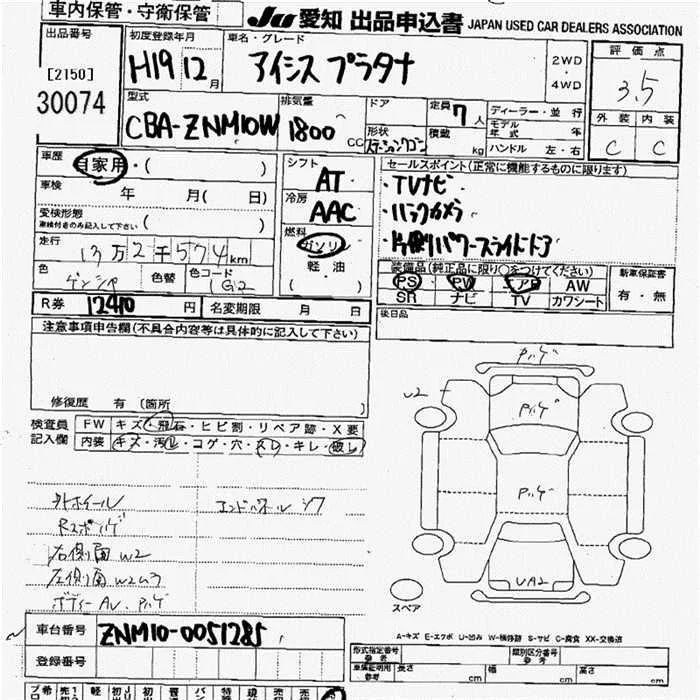 車内保管・守衛保管
JU 愛知 出品申込書 JAPAN USED CAR DEALERS ASSOCIATION
出品番号
[2150]
30074
初度登録年月
H19 12月
車名・グレード
アイシス プラタナ
2WD
・
4WD
評価点
3.5
外装 内装
C C
型式
CBA-ZNM10W
排気量
1800 CC
ドア
定員 7人
形状
ステーションワゴン
積載 kg
ディーラー・並行
モデル年式 年
ハンドル 左・右
車歴 自家用・( )
車検 年 月( 日)
愛検形態
車検付きのみ記入して下さい ( )
走行 13万2千574km
色 ゲンシャ 色替 色コード (G12)
シフト
AT
冷房
AAC
燃料
ガソリン
軽油
( )
セールスポイント(正常に機能するものに限ります)
・TVナビ
・バックカメラ
・片側パワースライドドア
装備品(純正品に限り○をつけてください)
PS PW エアB AW
SR ナビ TV カワシート
新車保証書
有・無
R券 12410円 名変期限 月 日
後日品
注意事項申告欄(不具合内容等は具体的に記入して下さい)
修復歴 有 [箇所 ]
検査員
記入欄
FW キズ・飛石・ヒビ割・リペア跡・X要
内装 キズ・汚れ・コゲ・穴・スレ・キレ・破レ
外ホイール
エンドパネル シワ
右側面W2
ボディーAU
W2
UA2
スペア
A-キズ E-エクボ U-凹み W-補修跡 S-サビ C-腐食 XX-交換済
車台番号 ZNM10-0051285
登録番号
形式指定番号
参考
類別区分番号
参考
車庫証明用
参考
長さ cm 幅 cm 高さ cm